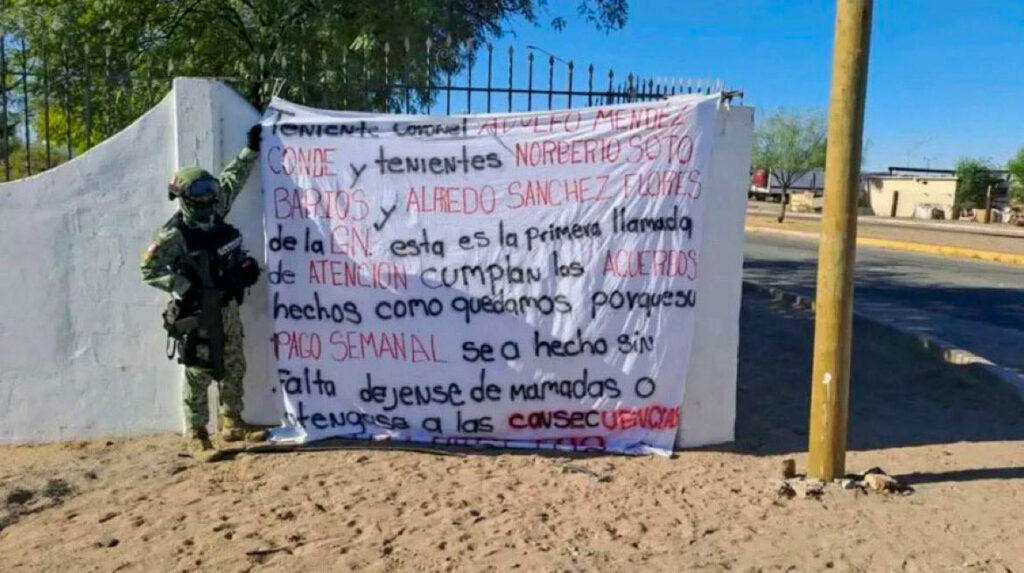 Teniente coronel ADOLFO MENDEZ
CONDE y tenientes NORBERTO SOTO
BARIOS y ALFREDO SANCHEZ FLORES
de la GN. esta es la primera llamada
de ATENCION cumplan los ACUERDOS
hechos como quedamos porquesu
PAGO SEMANAL se a hecho sin
falta dejense de mamadas o
atengase a las CONSECUENCIAS